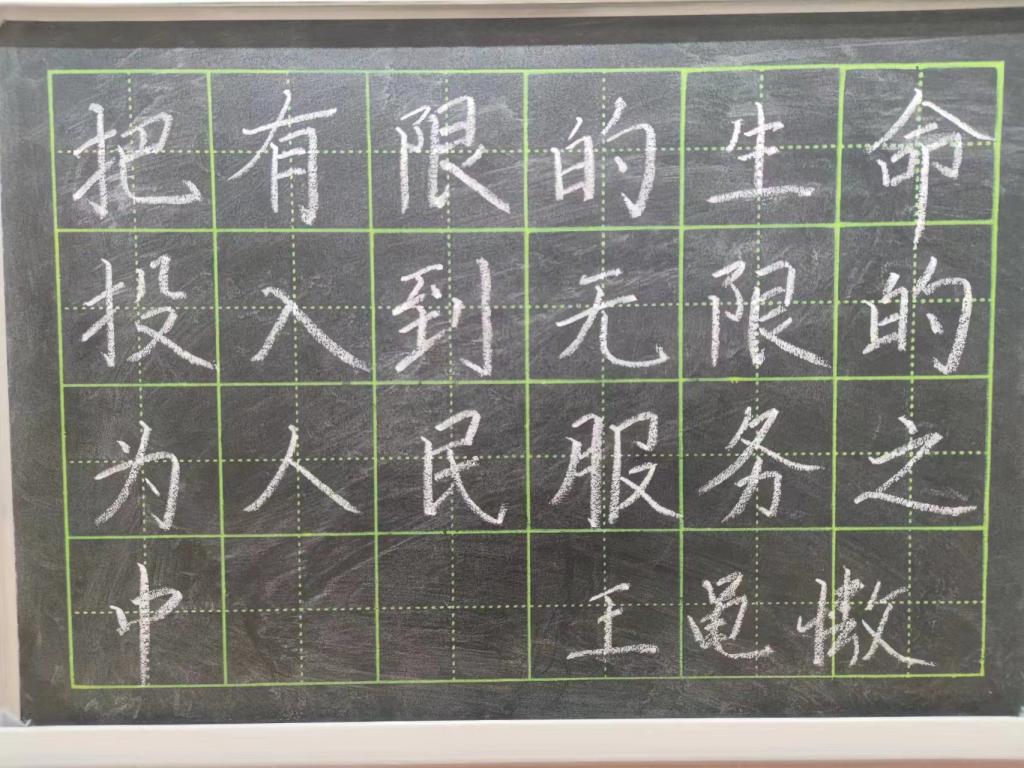 把有限的生命
投入到无限的
为人民服务之
中 王黾